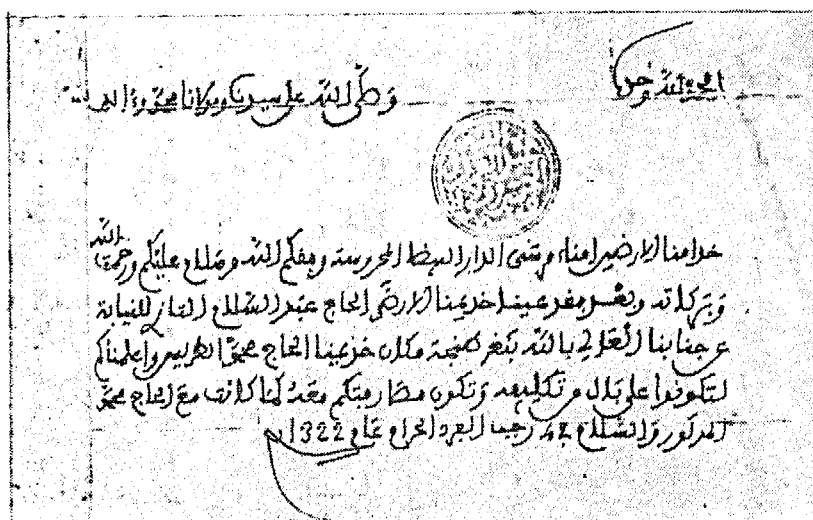 الحمد لله وحده
وصلى الله على سيدنا ومولانا محمد وآله
خدامنا الارضين امناء مرسى الدار البيضا المحروسة وفقكم الله وسلام عليكم ورحمت الله
وبركاته وبعد فقد عيننا خديمنا الارضى الحاج عبد السلام التازي للنيابة
عن جنابنا العالي بالله بثغر طنجة مكان خديمنا الحاج محمد الطريس واعلمناكم
لتكونوا على بال من تكليفه وتكون مضاربتكم معه كما كانت مع الحاج محمد
المذكور والسلام في رجب الفرد الحرام عام 1322